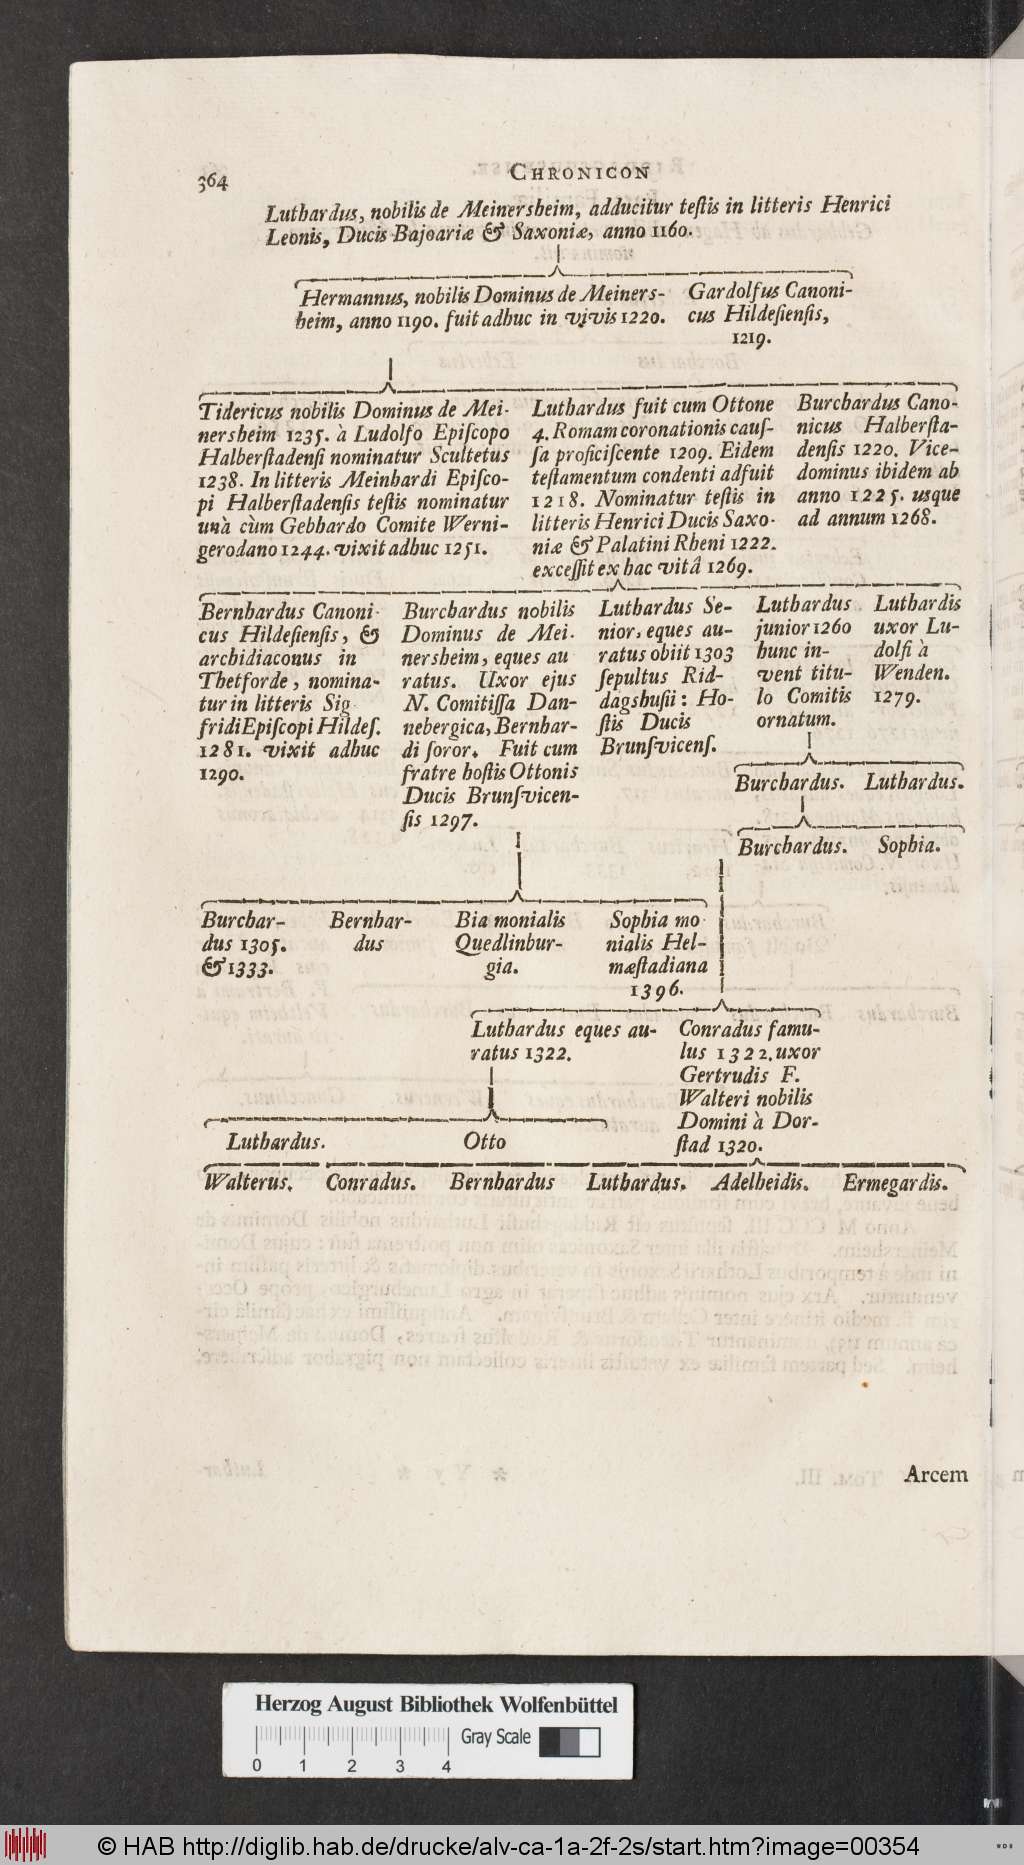 364
CHRONICON
Luthardus, nobilis de Meinersheim, adducitur testis in litteris Henrici
Leonis, Ducis Bajoariæ & Saxoniæ, anno 1160.
Hermannus, nobilis Dominus de Meiners-
heim, anno 1190. fuit adhuc in vivis 1220.
Gardolfus Canoni-
cus Hildesiensis,
1219.
Tidericus nobilis Dominus de Mei-
nersheim 1235. à Ludolfo Episcopo
Halberstadensi nominatur Scultetus
1238. In litteris Meinhardi Episco-
pi Halberstadensis testis nominatur
unà cùm Gebhardo Comite Werni-
gerodano 1244. vixit adhuc 1251.
Luthardus fuit cum Ottone
4. Romam coronationis caus-
sa proficiscente 1209. Eidem
testamentum condenti adfuit
1218. Nominatur testis in
litteris Henrici Ducis Saxo-
niæ & Palatini Rheni 1222.
excessit ex hac vitâ 1269.
Burchardus Cano-
nicus Halbersta-
densis 1220. Vice-
dominus ibidem ab
anno 1225. usque
ad annum 1268.
Bernhardus Canoni-
cus Hildesiensis, &
archidiaconus in
Thetforde, nomina-
tur in litteris Sig
fridi Episcopi Hildes.
1281. vixit adhuc
1290.
Burchardus nobilis
Dominus de Mei-
nersheim, eques au
ratus. Uxor ejus
N. Comitissa Dan-
nebergica, Bernhar-
di soror. Fuit cum
fratre hostis Ottonis
Ducis Brunsvicen-
sis 1297.
Luthardus Se-
nior, eques au-
ratus obiit 1303
sepultus Rid-
dagshusii: Ho-
stis Ducis
Brunsvicens.
Luthardus
junior 1260
hunc in-
vent titu-
lo Comitis
ornatum.
Luthardis
uxor Lu-
dolfi à
Wenden.
1279.
Burchardus. Luthardus.
Burchardus. Sophia.
Burchar-
dus 1305.
& 1333.
Bernhar-
dus
Bia monialis
Quedlinbur-
gia.
Sophia mo
nialis Hel-
mæstadiana
1396.
Luthardus eques au-
ratus 1322.
Conradus famu-
lus 1322. uxor
Gertrudis F.
Walteri nobilis
Domini à Dor-
stad 1320.
Luthardus. Otto
Walterus. Conradus. Bernhardus Luthardus. Adelheidis. Ermegardis.
Arcem
Herzog August Bibliothek Wolfenbüttel
Gray Scale
0 1 2 3 4
© HAB http://diglib.hab.de/drucke/alv-ca-1a-2f-2s/start.htm?image=00354